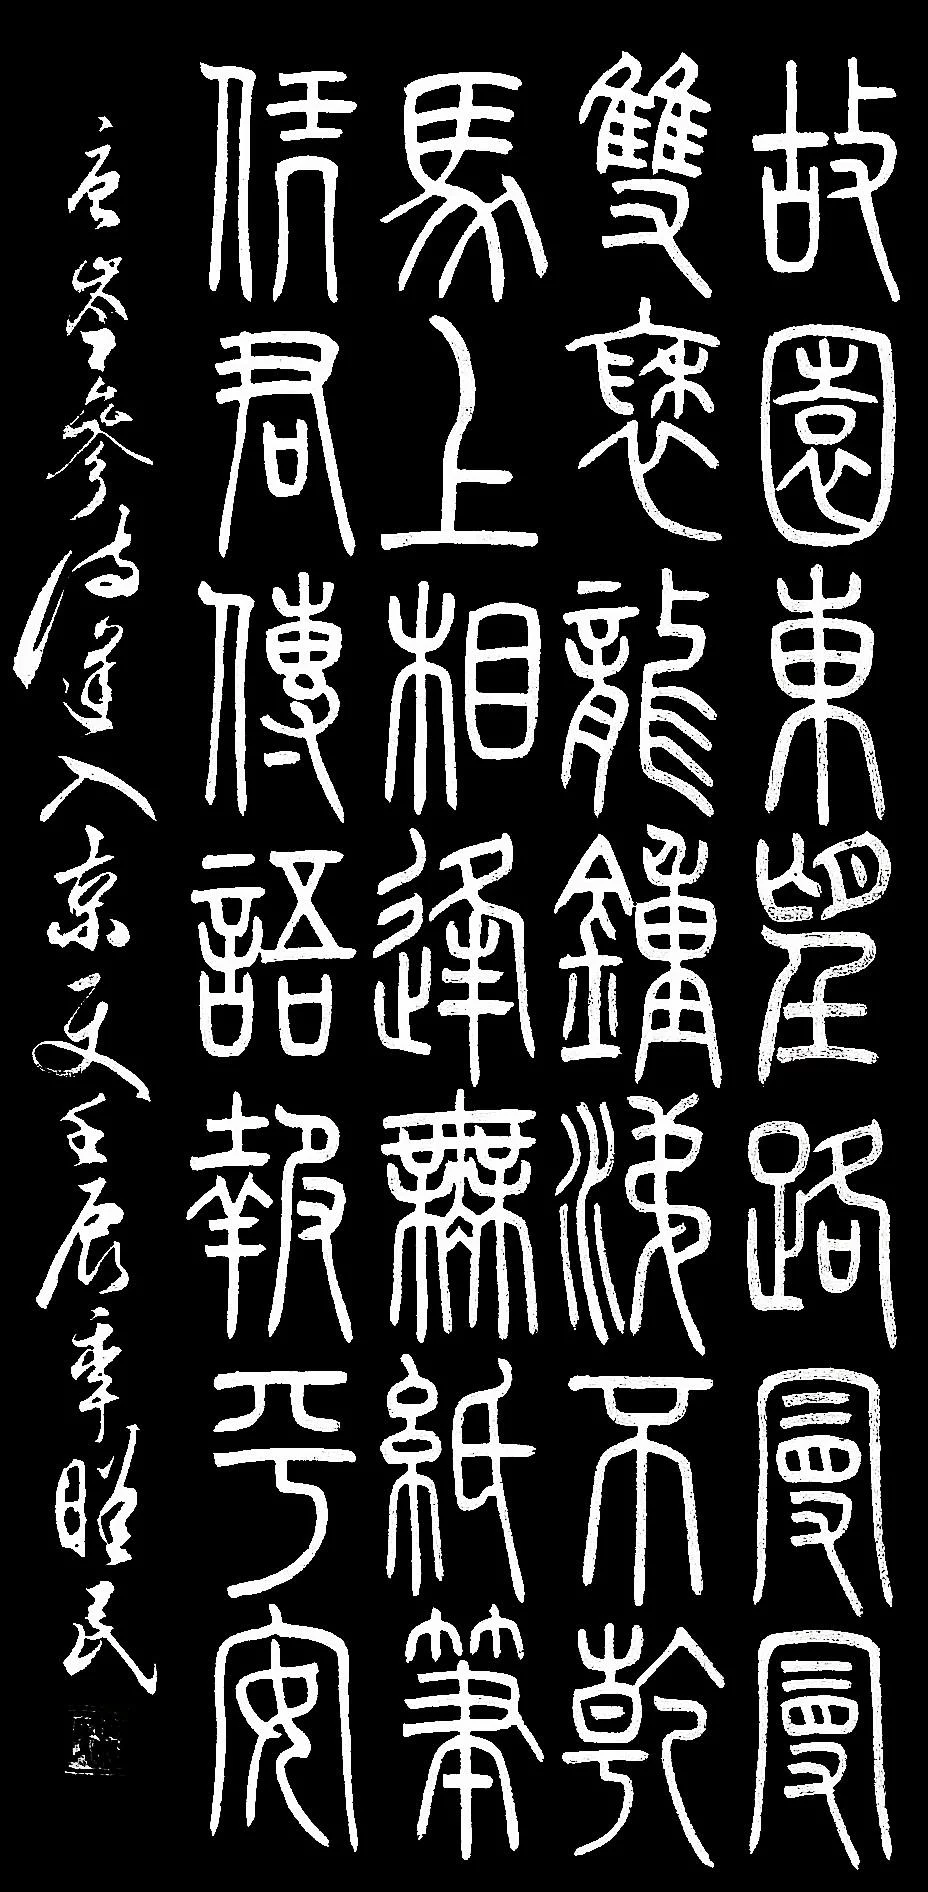 故園東望路曼曼
雙褎龍鍾涕不乾
馬上相逢無紙筆
凭君傳語報平安
唐岑參詩逢入京使壬辰年昭民